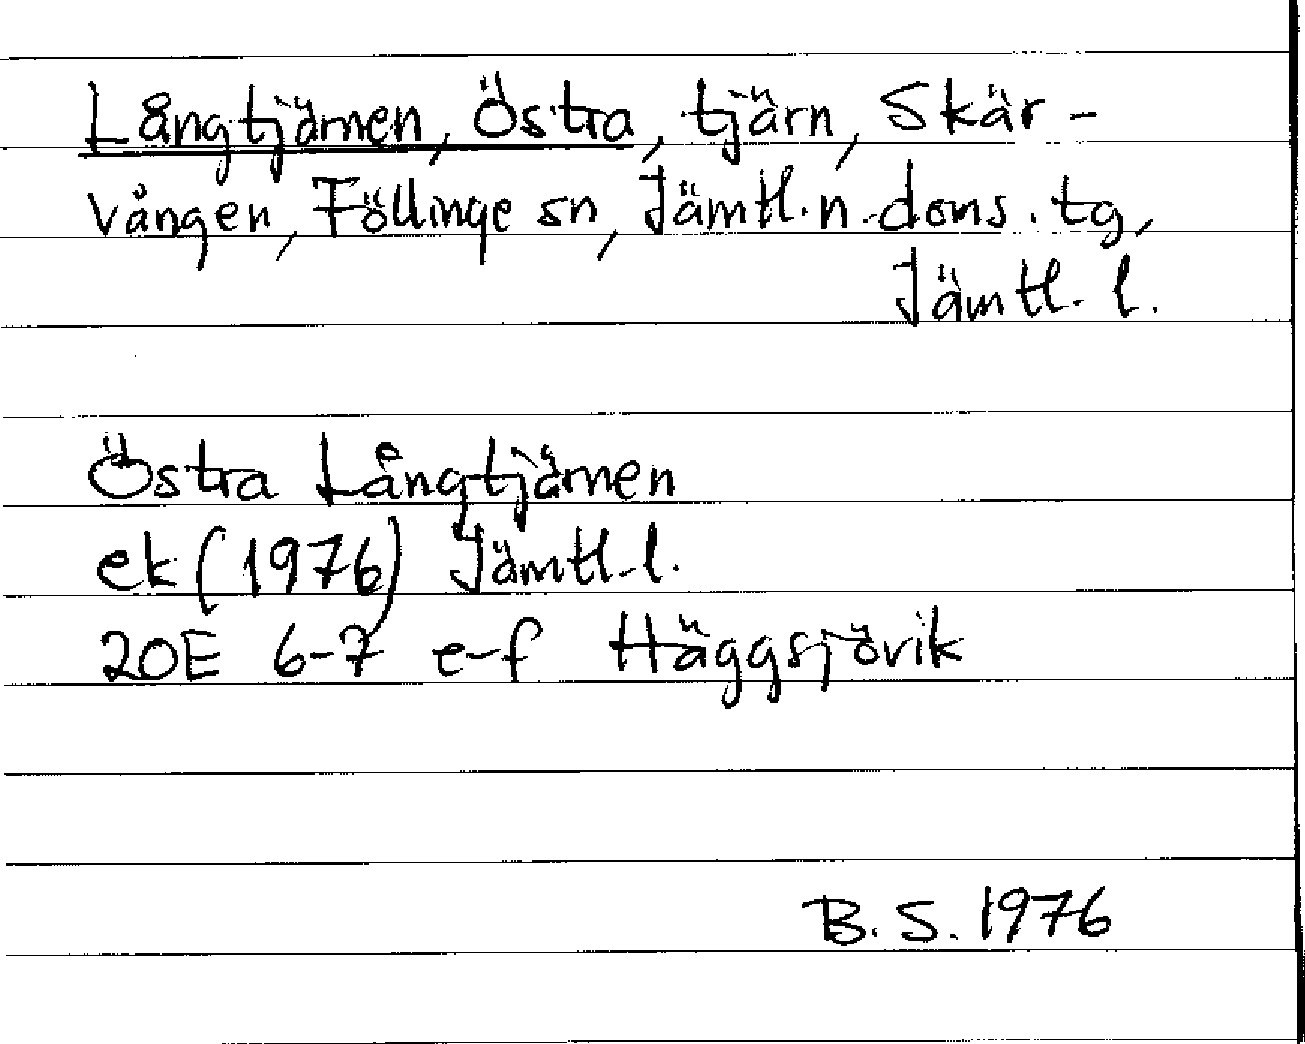 Långtjärnen, Östra, tjärn, Skär-
vången, Föllinge sn, Jämtl.n.doms.tg,
Jämtl. l.
Östra Långtjärnen
ek (1976) Jämtl. l.
20E 6-7 e-f Häggsjövik
B. S. 1976